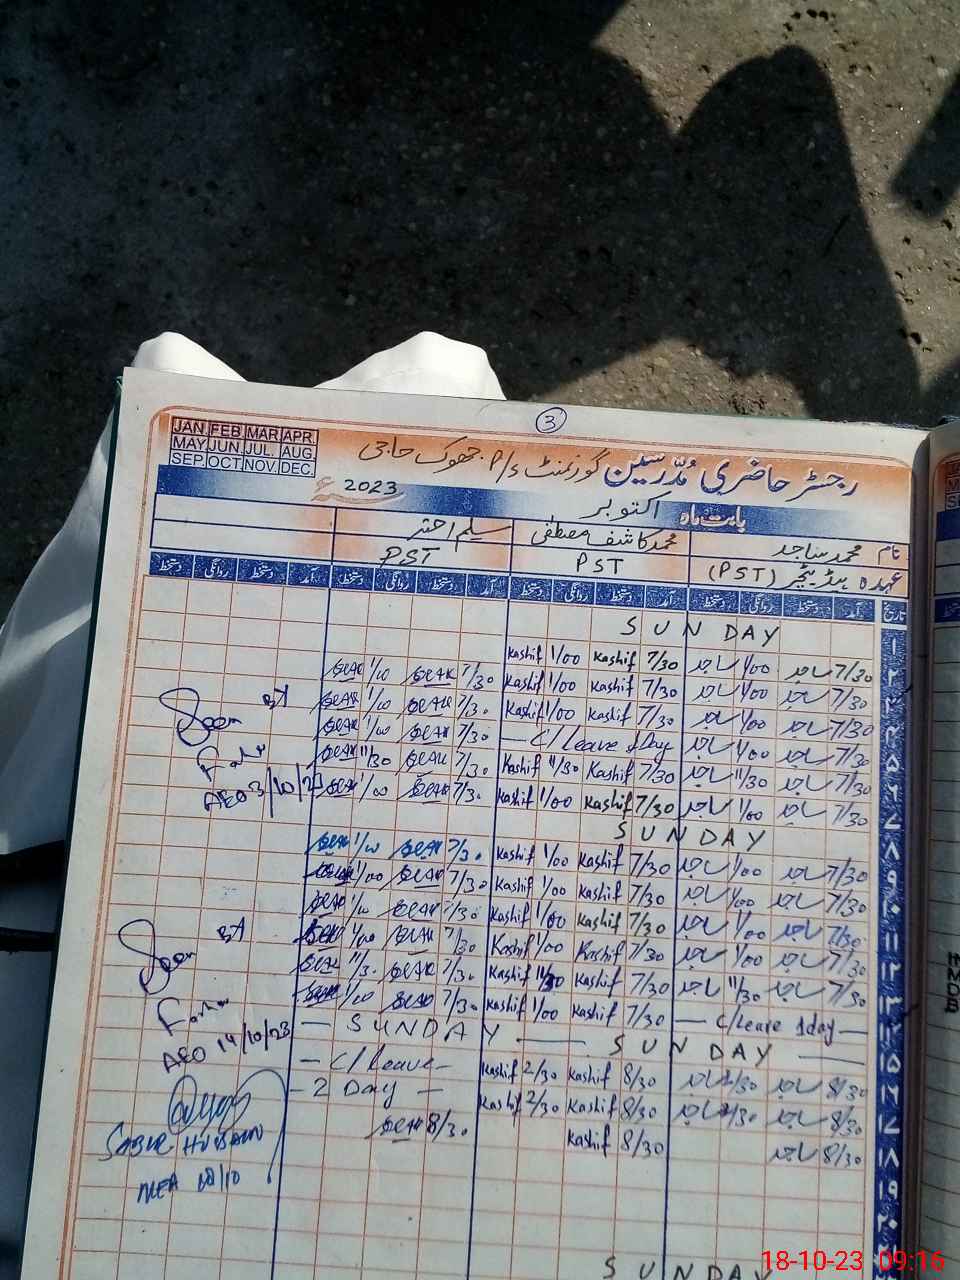 3
JAN FEB MAR APR.
MAY JUN JUL. AUG.
SEP OCT NOV. DEC.
رجسٹر حاضری مُدّرسین گورنمنٹ P/s جھوک حاجی
بابت ماہ اکتوبر 2023ء
نام محمد ساجد محمد کاشف مصطفٰی سلیم اختر
عہدہ ہیڈ ٹیچر (PST) PST PST
تاریخ آمد دستخط روانگی دستخط آمد دستخط روانگی دستخط آمد دستخط روانگی دستخط آمد دستخط روانگی دستخط
۱ SUNDAY
۲ 7/30 ساجد 1/00 ساجد 7/30 Kashif 1/00 Kashif 7/30 1/00
۳ 7/30 ساجد 1/00 ساجد 7/30 Kashif 1/00 Kashif 7/30 1/00
۴ 7/30 ساجد 1/00 ساجد 7/30 Kashif 1/00 Kashif 7/30 1/00
۵ 7/30 ساجد 1/00 ساجد — C/Leave 1 Day 7/30 11/30
۶ 7/30 ساجد 11/30 ساجد 7/30 Kashif 11/30 Kashif 7/30 1/00
۷ 7/30 ساجد 1/00 ساجد 7/30 Kashif 1/00 Kashif
AEO 3/10/23
۸ SUNDAY
۹ 7/30 ساجد 1/00 ساجد 7/30 Kashif 1/00 Kashif 7/30 1/00
۱۰ 7/30 ساجد 1/00 ساجد 7/30 Kashif 1/00 Kashif 7/30 1/00
۱۱ 7/30 ساجد 1/00 ساجد 7/30 Kashif 1/00 Kashif 7/30 1/00
۱۲ 7/30 ساجد 1/00 ساجد 7/30 Kashif 1/00 Kashif 7/30 1/00
۱۳ 7/30 ساجد 11/30 ساجد 7/30 Kashif 11/30 Kashif 7/30 11/30
۱۴ — C/Leave 1day — 7/30 Kashif 1/00 Kashif 7/30 1/00
AEO 14/10/23
۱۵ SUNDAY — SUNDAY —
۱۶ 8/30 ساجد 2/30 ساجد 8/30 Kashif 2/30 Kashif — C/Leave —
۱۷ 8/30 ساجد 2/30 ساجد 8/30 Kashif 2/30 Kashif — 2 Day —
۱۸ 8/30 ساجد 8/30 Kashif 8/30
HUSSAIN
MEA 18/10
۱۹
۲۰
SUNDAY
18-10-23 09:16